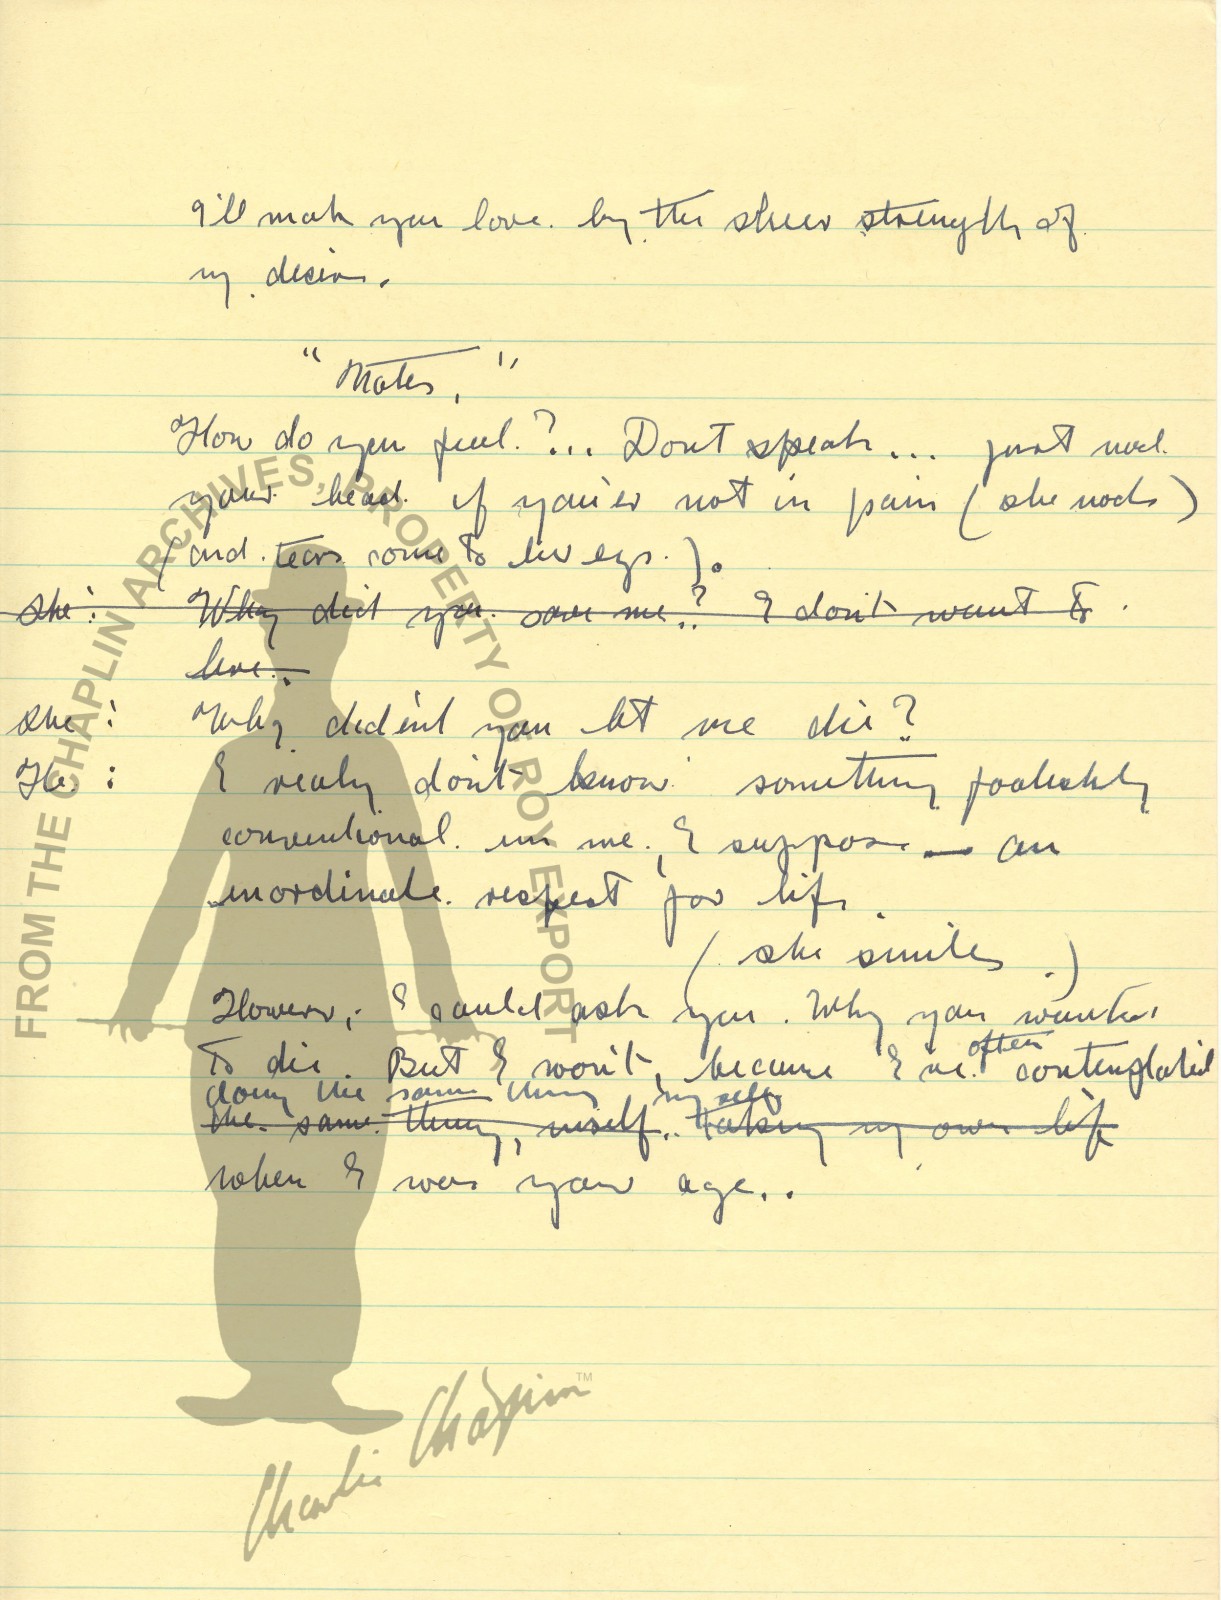 I'll make you love. by the sheer strength of
my desire.
"Notes,"
How do you feel.?... Dont speak... just nod.
your head. if you'er not in pain (she nods)
(and tears come to her eyes.).
She: Why did you save me? I don't want to
live..
She: Why did'ent you let me die?
He: I realy don't know something foolishly
conventional in me, I suppose — an
inordinate. respect for life.
(she smiles.)
However, I could ask you. Why you wanted
to die. But I won't, because I've often contemplated
doing the same thing my self
the same thing, myself.. Taking my own life
when I was your age..
FROM THE CHAPLIN ARCHIVES, PROPERTY OF ROY EXPORT
Charlie Chaplin™